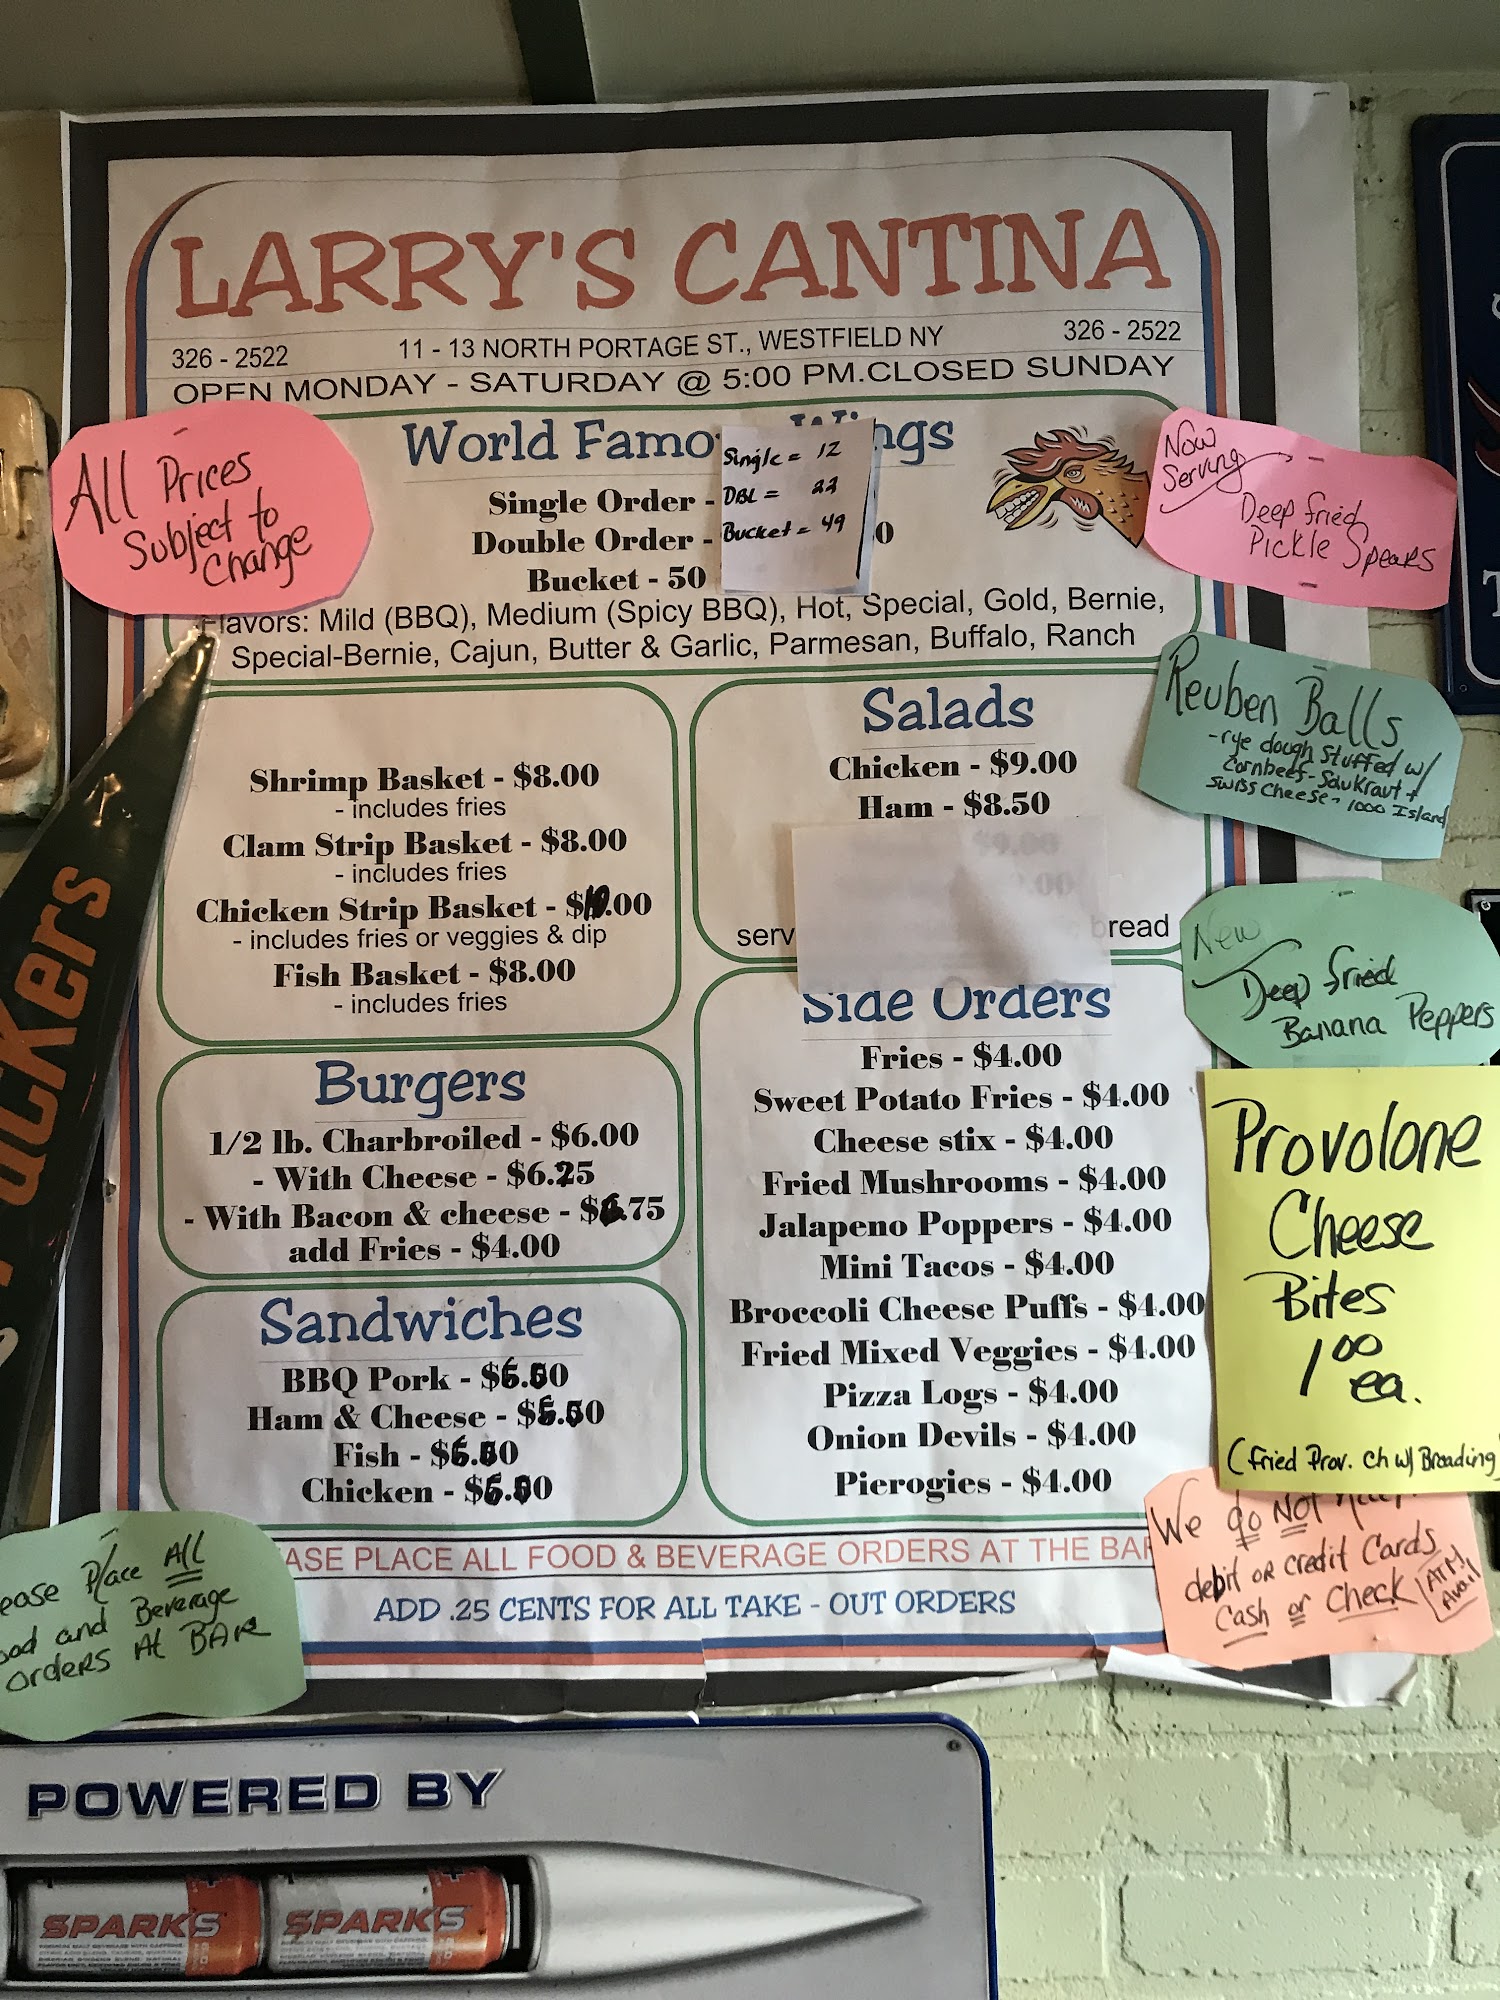 LARRY'S CANTINA
326 - 2522 11 - 13 NORTH PORTAGE ST., WESTFIELD NY 326 - 2522
OPEN MONDAY - SATURDAY @ 5:00 PM.CLOSED SUNDAY
All Prices
Subject to
Change
World Famo ngs
Single Order -
Double Order - 0
Bucket - 50
Single = 12
DBL = 22
Bucket = 49
Flavors: Mild (BBQ), Medium (Spicy BBQ), Hot, Special, Gold, Bernie,
Special-Bernie, Cajun, Butter & Garlic, Parmesan, Buffalo, Ranch
Shrimp Basket - $8.00
- includes fries
Clam Strip Basket - $8.00
- includes fries
Chicken Strip Basket - $10.00
- includes fries or veggies & dip
Fish Basket - $8.00
- includes fries
Burgers
1/2 lb. Charbroiled - $6.00
- With Cheese - $6.25
- With Bacon & cheese - $6.75
add Fries - $4.00
Sandwiches
BBQ Pork - $6.50
Ham & Cheese - $6.50
Fish - $6.50
Chicken - $6.50
Salads
Chicken - $9.00
Ham - $8.50
$9.00
.00
serv bread
Side Orders
Fries - $4.00
Sweet Potato Fries - $4.00
Cheese stix - $4.00
Fried Mushrooms - $4.00
Jalapeno Poppers - $4.00
Mini Tacos - $4.00
Broccoli Cheese Puffs - $4.00
Fried Mixed Veggies - $4.00
Pizza Logs - $4.00
Onion Devils - $4.00
Pierogies - $4.00
ASE PLACE ALL FOOD & BEVERAGE ORDERS AT THE BAR
ADD .25 CENTS FOR ALL TAKE - OUT ORDERS
Now
Serving
Deep fried
Pickle Spears
Reuben Balls
- rye dough stuffed w/
Cornbeef - SauKraut +
Swiss Cheese - 1000 Island
New
Deep fried
Banana Peppers
Provolone
Cheese
Bites
1 00
ea.
(fried Prov. Ch w/ Breading
We do NOT
debit or credit Cards
Cash or Check
ATM
Avail
ease Place All
ood and Beverage
orders At BAR
uckers
POWERED BY
SPARKS SPARKS